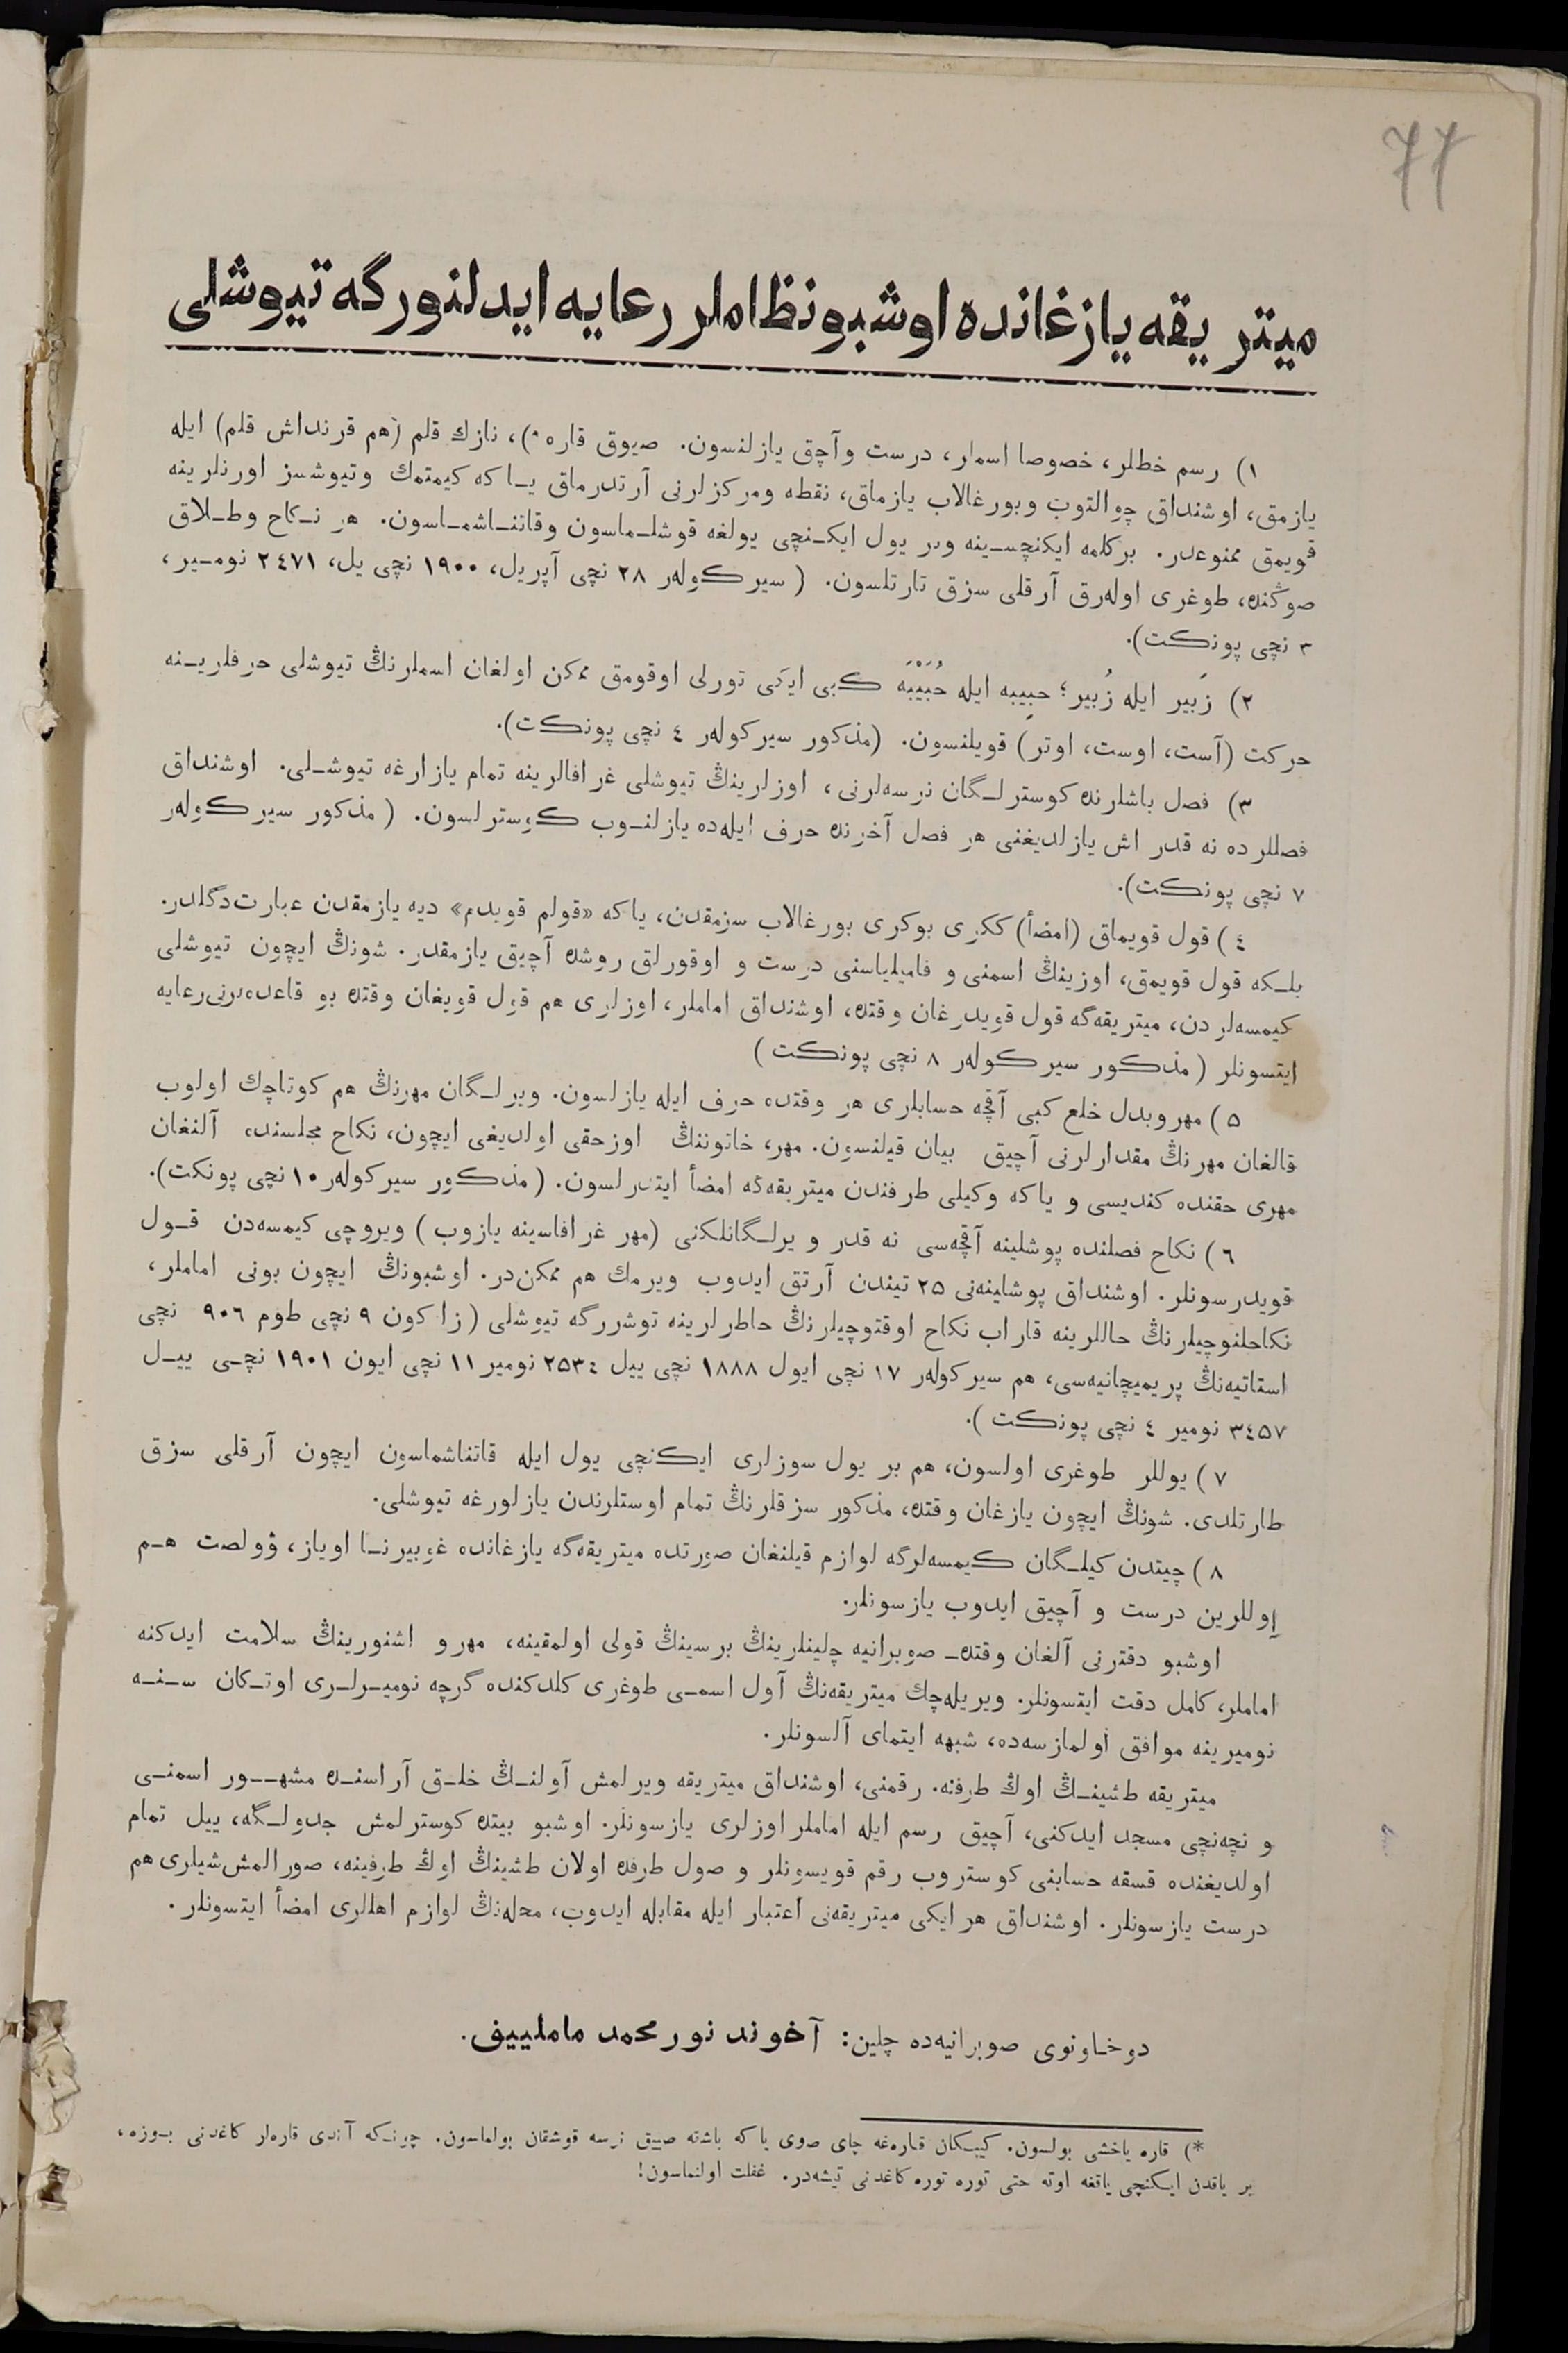 77
ميتريقه يازغانده اوشبو نظاملر رعايه ايدلنورگه تيوشلى
١) رسم خطلر، خصوصا اسملر، درست وآچق يازلنسون. صيوق قاره *)، نازك قلم (هم قرنداش قلم) ايله
يازمق، اوشنداق چوالتوب وبورغالاب يازماق، نقطه ومركزلرنى آرتدرماق يا كه كيمتمك وتيوشسز اورنلرينه
قويمق ممنوعدر. بركلمه ايكنچسينه وبر يول ايكنچى يولغه قوشلماسون وقاتناشماسون. هر نكاح وطلاق
صوڭنده، طوغرى اولەرق آرقلى سزق تارتلسون. (سيركولەر ٢٨ نچى آپريل، ١٩٠٠ نچى يل، ٢٤٧١ نومير،
٣ نچى پونكت).
٢) زَبير ايله زُبير؛ حبِيبه ايله حُبَيْبَه كبى ايكى تورلى اوقومق ممكن اولغان اسملرنڭ تيوشلى حرفلرينه
حركت (آست، اوست، اوتر) قويلنسون. (مذكور سيركولەر ٤ نچى پونكت).
٣) فصل باشلرنده كوسترلگان نرسەلرنى، اوزلرينڭ تيوشلى غرافالرينه تمام يازارغه تيوشلى. اوشنداق
فصللرده نه قدر اش يازلديغنى هر فصل آخرنده حرف ايلەده يازلنوب كوسترلسون. (مذكور سيركولەر
٧ نچى پونكت).
٤) قول قويماق (امضأ) ككرى بوكرى بورغالاب سزمقدن، ياكه «قولم قويدم» ديه يازمقدن عبارت دگلدر.
بلكه قول قويمق، اوزينڭ اسمنى و فاميلياسنى درست و اوقورلق روشده آچيق يازمقدر. شونڭ ايچون تيوشلى
كيمسەلردن، ميتريقەگه قول قويدرغان وقتده، اوشنداق اماملر، اوزلرى هم قول قويغان وقتده بو قاعدەلرنى رعايه
ايتسونلر (مذكور سيركولەر ٨ نچى پونكت)
٥) مهر وبدل خلع كبى آقچه حسابلرى هر وقتده حرف ايله يازلسون. ويرلگان مهرنڭ هم كوتاچك اولوب
قالغان مهرنڭ مقدارلرنى آچيق بيان قيلنسون. مهر، خاتوننڭ اوزحقى اولديغى ايچون، نكاح مجلسنده آلنغان
مهرى حقنده كنديسى و ياكه وكيلى طرفندن ميتريقەگه امضأ ايتدرلسون. (مذكور سيركولەر ١٠ نچى پونكت).
٦) نكاح فصلنده پوشلينه آقچەسى نه قدر ويرلگانلكنى (مهر غرافاسينه يازوب) ويروچى كيمسەدن قول
قويدرسونلر. اوشنداق پوشلينەنى ٢٥ تيندن آرتق ايدوب ويرمك هم ممكن در. اوشبونڭ ايچون بونى اماملر،
نكاحلنوچيلرنڭ حاللرينه قاراب نكاح اوقتوچيلرنڭ خاطرلرينه توشررگه تيوشلى (زاكون ٩ نچى طوم ٩٠٦ نچى
استاتيەنڭ پريميچانيەسى، هم سيركولەر ١٧ نچى ايول ١٨٨٨ نچى ييل ٢٥٣٤ نومير ١١ نچى ايون ١٩٠١ نچى ييل
٣٤٥٧ نومير ٤ نچى پونكت).
٧) يوللر طوغرى اولسون، هم بر يول سوزلرى ايكنچى يول ايله قاتناشماسون ايچون آرقلى سزق
طارتلدى. شونڭ ايچون يازغان وقتده، مذكور سزقلرنڭ تمام اوستلرندن يازلورغه تيوشلى.
٨) چيتدن كيلگان كيمسەلرگه لوازم قيلنغان صورتده ميتريقەگه يازغانده غوبيرنا اوياز، ۋولصت هم
اوللرين درست و آچيق ايدوب يازسونلر.
اوشبو دفترنى آلغان وقتده صوبرانيه چلينلرينڭ برسينڭ قولى اولمقينه، مهر و اشنورينڭ سلامت ايدكنه
اماملر، كامل دقت ايتسونلر. ويريلەچك ميتريقەنڭ آول اسمى طوغرى كلدكنده گرچه نوميرلرى اوتكان سنه
نوميرينه موافق اولمازسەده، شبهه ايتماى آلسونلر.
ميتريقه طشينڭ اوڭ طرفنه. رقمنى، اوشنداق ميتريقه ويرلمش آولنڭ خلق آراسنده مشهور اسمنى
و نچەنچى مسجد ايدكنى، آچيق رسم ايله اماملر اوزلرى يازسونلر. اوشبو بيتده كوسترلمش جدولگه، ييل تمام
اولديغنده قسقه حسابنى كوستروب رقم قويسونلر و صول طرفده اولان طشينڭ اوڭ طرفينه، صورالمش شيلرى هم
درست يازسونلر. اوشنداق هر ايكى ميتريقەنى اعتبار ايله مقابله ايدوب، محلەنڭ لوازم اهللرى امضأ ايتسونلر.
دوخاونوى صوبرانيەده چلين: آخوند نور محمد ماملييف.
*) قاره ياخشى بولسون. كيبكان قارەغه چاى صوى ياكه باشقه صيق نرسه قوشقان بولماسون. چونكه آندى قارەلر كاغدنى بوزه،
بر ياقدن ايكنچى ياقغه اوته حتى توره توره كاغدنى تيشەدر. غفلت اولنماسون!